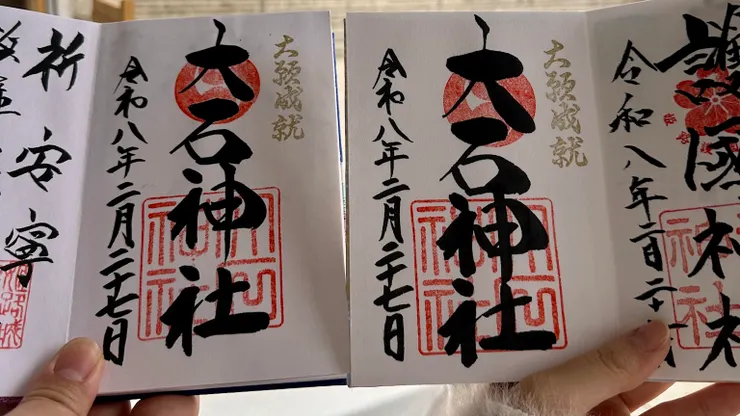 大願成就
大石神社
令和八年二月二十七日
祈安寧
護國神社
令和八年二月二十
大願成就
大石神社
令和八年二月二十七日